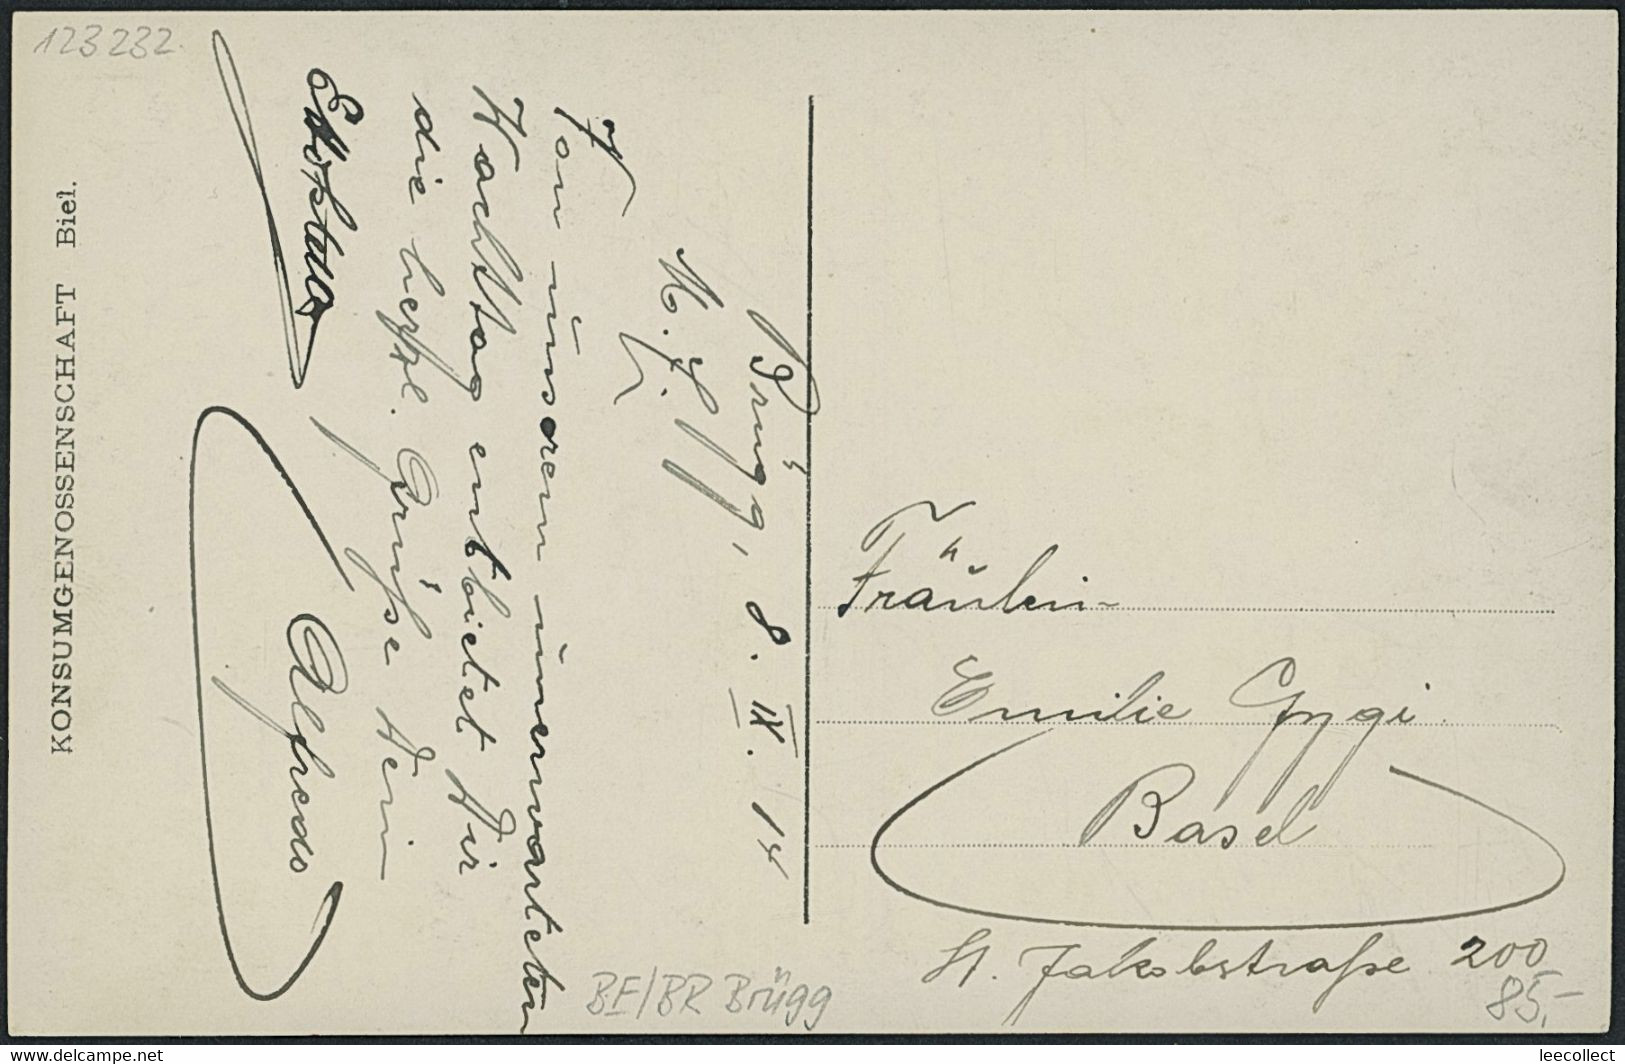 123232.
KONSUMGENOSSENSCHAFT Biel.
Brügg, 8. IX. 14
M. L.
Von unserem unerwarteten
Wachttag entbietet Dir
die herzl. Grüsse Dein
Alfredo
Fräulein
Emilie Gygi
Basel
St. Jakobstraße 200
85.-
BE/BR Brügg
www.delcampe.net
leecollect